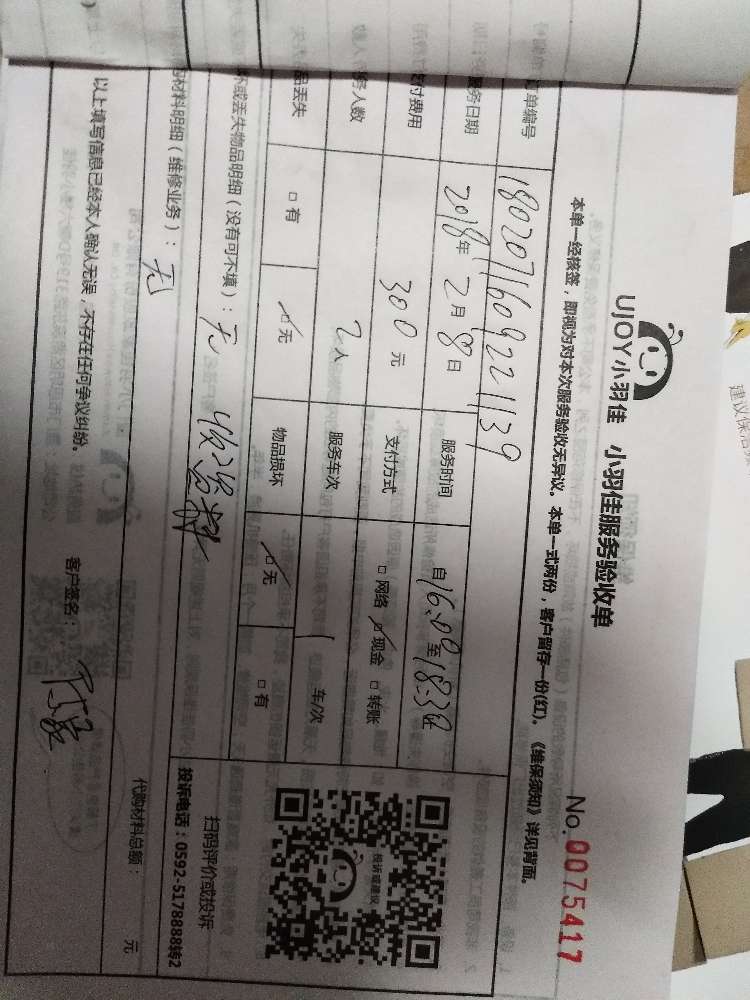 UJOY小羽佳 小羽佳服务验收单
No. 0075417
本单一经核签,即视为对本次服务验收无异议。本单一式两份,客户留存一份(红)。《维保须知》详见背面。
单编号 1802071609221139
服务日期 2018年2月8日 服务时间 自16:00至18:30
付费用 300元 支付方式 □网络 ☑现金 □转账
人数 2人 服务车次 1 车/次
品丢失 □有 ☑无 物品损坏 ☑无 □有
坏或丢失物品明细(没有可不填):无 收资料
材料明细(维修业务):无
代购材料总额: 元
以上填写信息已经本人确认无误,不存在任何争议纠纷。
客户签名:
投诉或建议
扫码评价或投诉
投诉电话:0592-5178888转2
建议保洁频